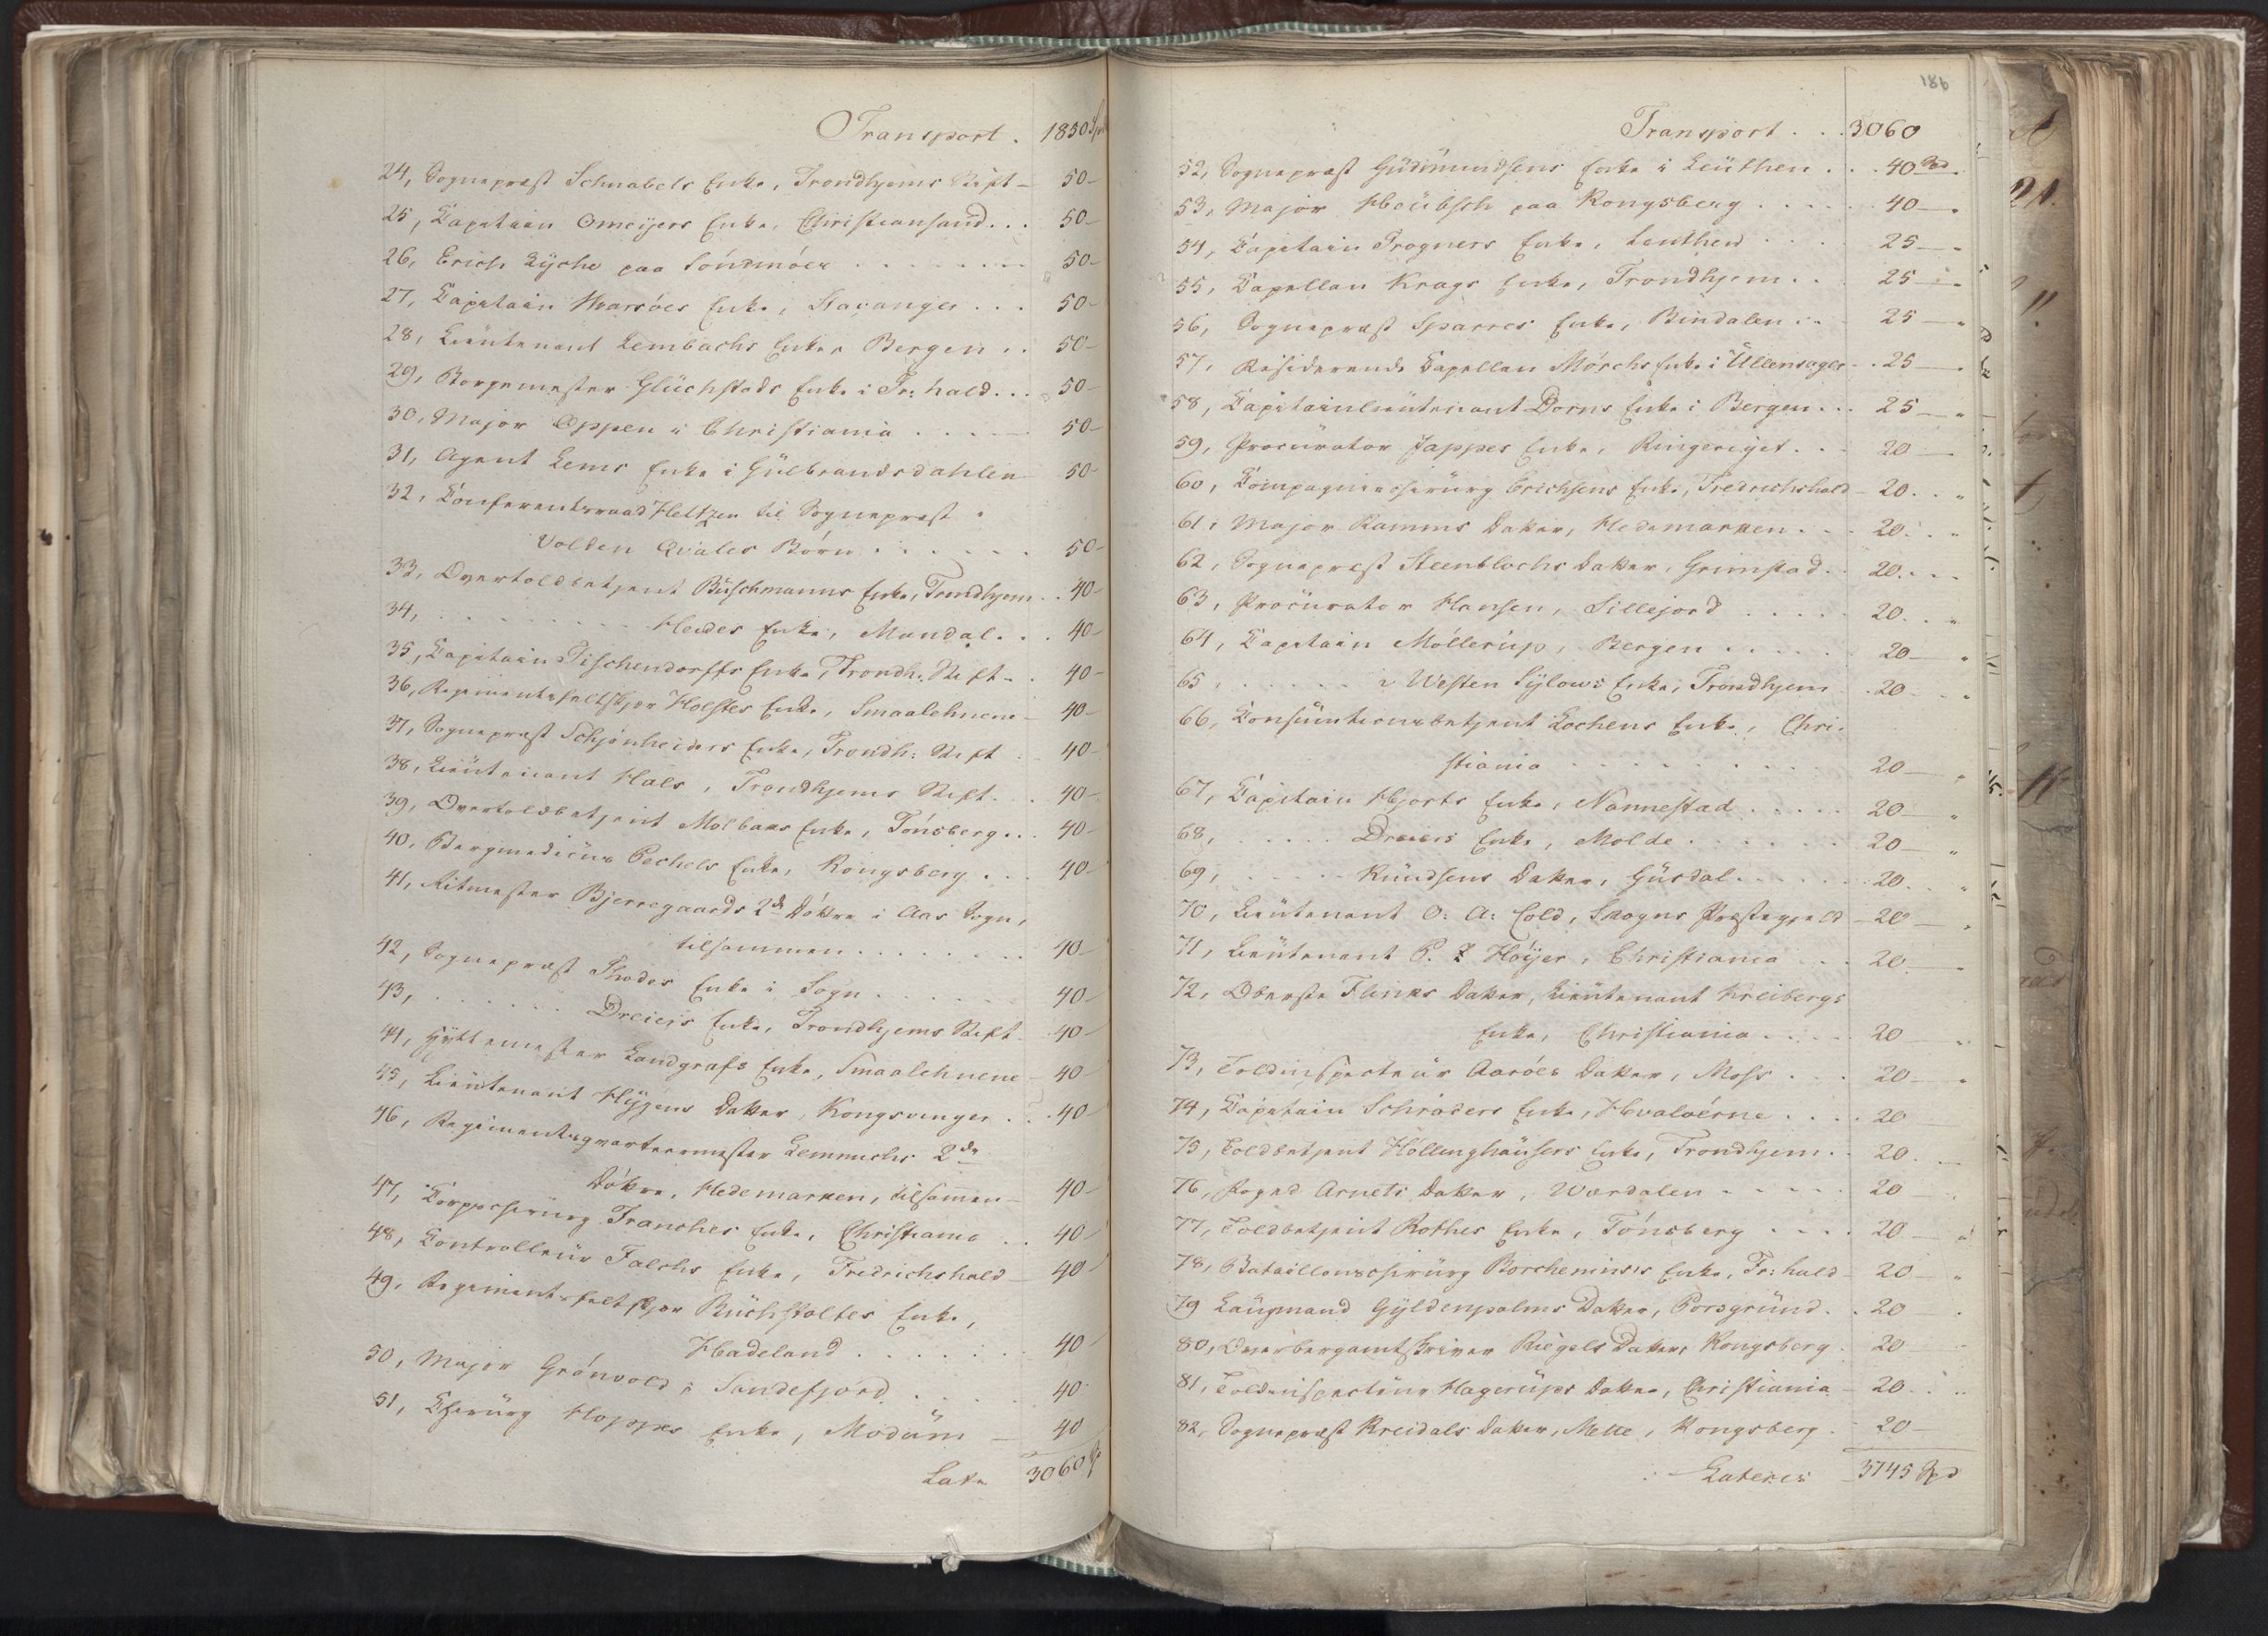 Transport. 1850 Spd
24, Sognepræst Schnabels Enke, Trondhjems Stift - 50-
25, Capitain Omeijers Enke, Christiansand... 50-
26, Erich Lyche paa Söndmöer 50-
27, Capitain Hvarsöes Enke, Stavanger... 50-
28, Lieutenant Lembachs Enke, Bergen.. 50-
29, Borgemester Glückstads Enke i Fr: hald... 50-
30, Major Oppen i Christiania 50-
31, Agent Lems Enke i Gulbrandsdahlen 50-
32, Conferentsraad Heltzen til Sognepræst
Volden Qvales Börn 50-
33, Overtoldbetjent Buschmanns Enke, Trondhjem.. 40-
34, Heides Enke, Mandal... 40-
35, Capitain Tischendorffs Enke, Trondh: Stift.. 40-
36, Regimentsfeltskjær Holstes Enke, Smaalehnene - 40-
37, Sognepræst Schjönheiders Enke, Trondh: Stift 40-
38, Lieutenant Hals, Trondhjems Stift... 40-
39, Overtoldbetjent Molbaks Enke, Tönsberg... 40-
40, Bergmedicus Pechels Enke, Kongsberg... 40-
41, Ritmester Bjerregaards 2de Döttre i Aas Sogn,
tilsammen 40-
42, Sognepræst Thodes Enke i Sogn 40-
43, Dreiers Enke, Trondhjems Stift 40-
44, Hyttemester Landgrafs Enke, Smaalehnene - 40-
45, Lieutenant Hygens Datter, Kongsvinger.. 40-
46, Regimentsqvarteermester Lemmichs 2de
Döttre, Hedemarken, tilsammen - 40-
47, Corpschirurg Franches Enke, Christiania.. 40-
48, Controlleur Falchs Enke, Fredrichshald - 40-
49, Regimentsfeltskjær Buchholtes Enke,
Hadeland 40-
50, Major Grönvold, Sandefjord 40-
51, Chirurg Hoppes Enke, Modum - 40
Late 3060 Sp

186
Transport... 3060
52, Sognepræst Gudmundsens Enke i Leuthen.. 40 Spd
53, Major Heübsch paa Kongsberg 40-
54, Capitain Trogners Enke, Leuthen 25-
55, Capellan Krags Enke, Trondhjem.. 25-
56, Sognepræst Sparres Enke, Bindalen.. 25-
57, Residerende Capellan Mörchs Enke i Ullensager.. 25-
58, Capitainlieutenant Dorns Enke i Bergen... 25-
59, Procurator Jappes Enke, Ringeriget.. 20-
60, Compagniechirurg Erichsens Enke, Fredrichshald - 20..
61, Major Ramms Datter, Hedemarken... 20..
62, Sognepræst Steenblochs Datter, Grimstad.. 20...
63, Procurator Hansen, Sillejord 20..
64, Capitain Möllerup, Bergen 20-
65, v Westen Sylows Enke, Trondhjem 20-
66, Consumtionsbetjent Lochens Enke, Chri-
stiania 20-
67, Capitain Hjorts Enke, Nannestad 20-
68, Dreiers Enke, Molde 20-
69, Knudsens Datter, Gusdal 20..
70, Lieutenant O: A: Cold, Skogns Præstegjeld - 20-
71, Lieutenant P. Z Höijer, Christiania 20-
72, Oberste Flinks Datter, Lieutenant Kreibergs
Enke, Christiania 20
73, Toldinspecteur Aaröes Datter, Moss 20-
74, Capitain Schröders Enke, Hvalöerne 20
75, Toldbetjent Höllinghäusers Enke, Trondhjem.. 20.
76, Foged Arnets Datter, Wærdalen 20-
77, Toldbetjent Rothes Enke, Tönsberg 20-
78, Bataillonschirurg Borcheniuses Enke, Fr: hald - 20-
79 Laugmand Gyldenpalms Datter, Porsgrund.. 20-
80, Overbergamtskriver Riegels Datter, Kongsberg. 20-
81, Toldinspecteur Hagerups Datter, Christiania - 20..
82, Sognepræst Kreidals Datter, Mette, Kongsberg. 20-
Lateris 3745 Spd